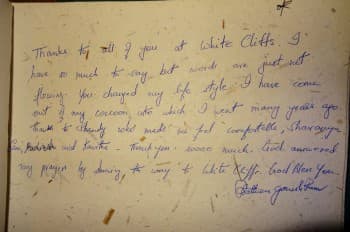 Thanks to all of you at White Cliffs. I
have so much to say but words are just not
flowing. You changed my life style. I have come
out of my cocoon into which I went many years ago.
Thanks to who made me feel comfortable,
and Thank you soooo much. God answered
my prayers by showing the way to White Cliffs. God Bless You.